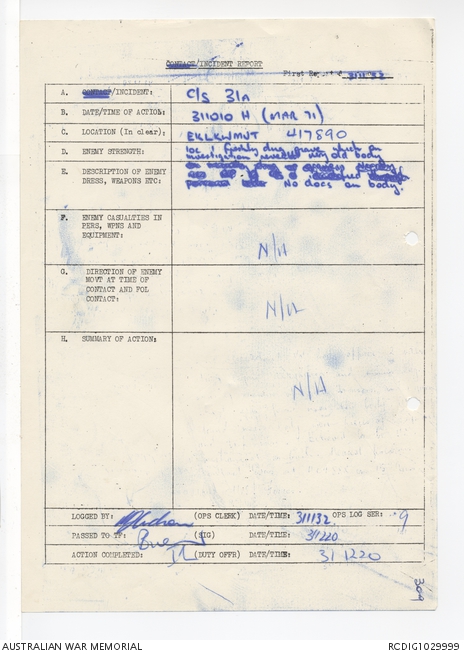 CONTACT/INCIDENT REPORT
First Rep 311132
A. CONTACT/INCIDENT: C/S 31A
B. DATE/TIME OF ACTION: 311010 H (MAR 71)
C. LOCATION (In clear): EKLKWMNT 417890
D. ENEMY STRENGTH: loc 1 freshly dug grave which on
investigation revealed very old body
E. DESCRIPTION OF ENEMY
DRESS, WEAPONS ETC:
No docs on body.
F. ENEMY CASUALTIES IN
PERS, WPNS AND
EQUIPMENT:
N/A
G. DIRECTION OF ENEMY
MOVT AT TIME OF
CONTACT AND FOL
CONTACT:
N/A
H. SUMMARY OF ACTION:
N/A
LOGGED BY: (OPS CLERK) DATE/TIME: 311132 OPS LOG SER: 9
PASSED TO TF: (SIG) DATE/TIME: 311220
ACTION COMPLETED: (DUTY OFFR) DATE/TIME: 311220
369
AUSTRALIAN WAR MEMORIAL RCDIG1029999